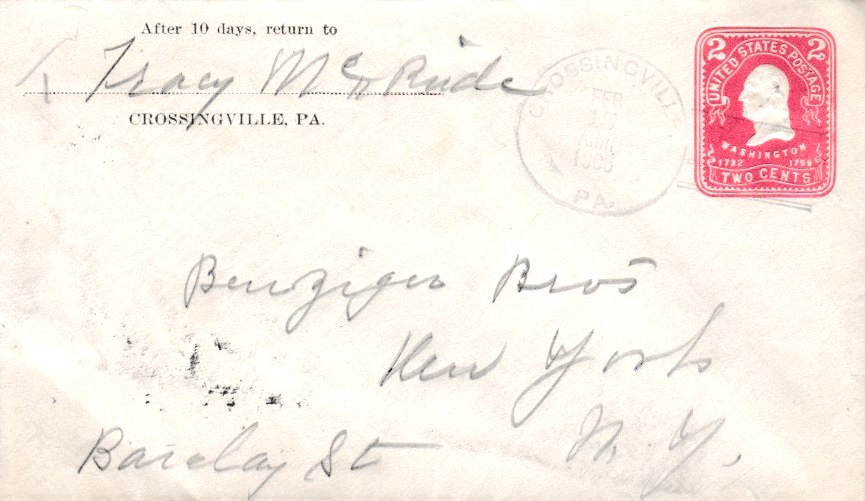 After 10 days, return to
Tracy
CROSSINGVILLE, PA.
CROSSINGVILLE
FEB
15
PA.
2 2
UNITED STATES POSTAGE
WASHINGTON
1732 1799
TWO CENTS
Benziger Bros
New York
Barclay St N. Y.